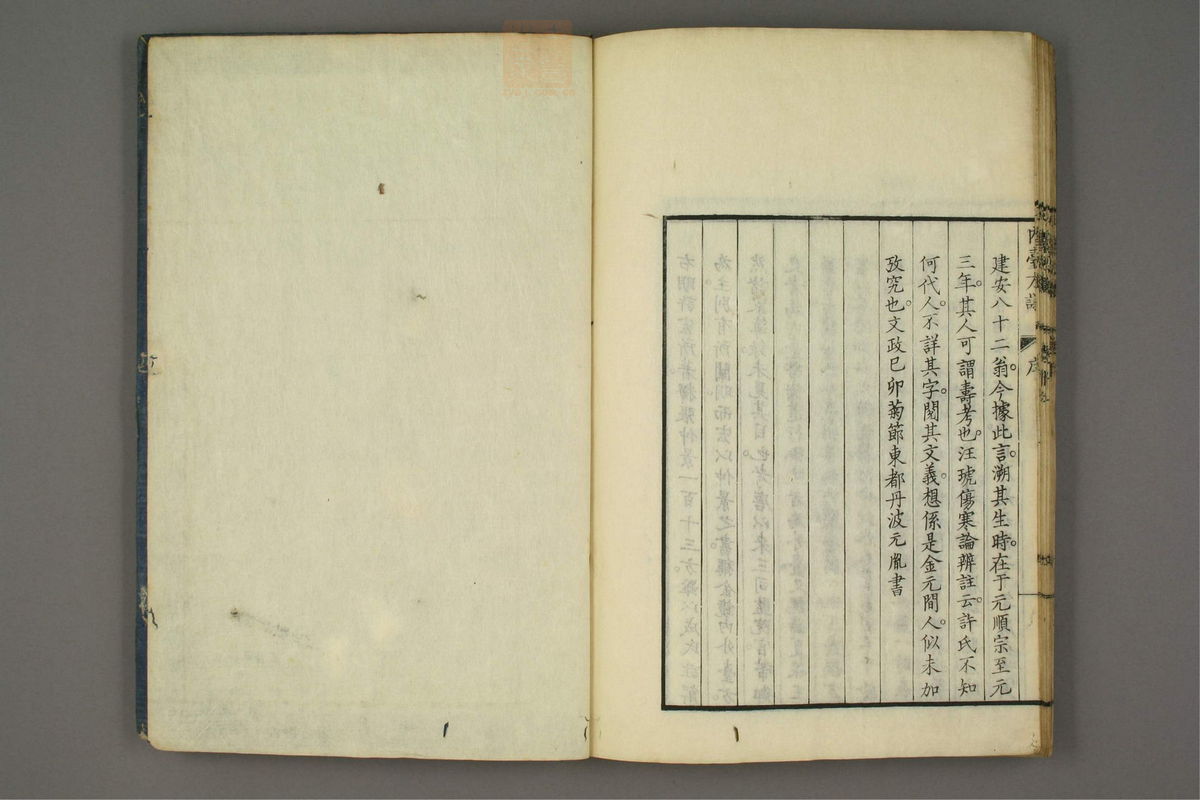 建安八十二翁。今據此言。溯其生時。在于元順宗至元
三年。其人可謂壽考也。汪琥傷寒論辨註云。許氏不知
何代人。不詳其字。閱其文義。想係是金元間人。似未加
攷究也。文政己卯菊節東都丹波元胤書
序